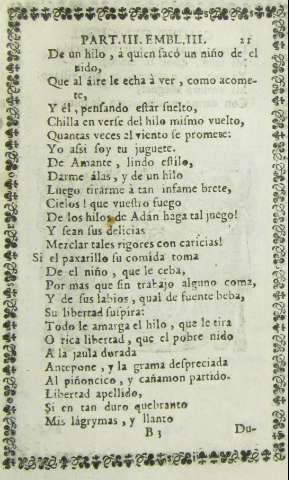 PART.III. EMBL.III. 21
De un hilo , à quien sacó un niño de el
nido,
Que al áire le echa à vèr , como acome-
te,
Y èl , pensando estár suelto,
Chilla en verse del hilo mismo vuelto,
Quantas veces al viento se promete:
Yo assi soy tu juguete.
De Amante , lindo estilo,
Darme álas, y de un hilo
Luego tirarme à tan infame brete,
Cielos! que vuestro fuego
De los hilos de Adán haga tal juego!
Y sean sus delicias
Mezclar tales rigores con caricias!
Si el paxarillo su comida toma
De el niño , que le ceba,
Por mas que sin trabajo alguno coma,
Y de sus labios , qual de fuente beba,
Su libertad suspira:
Todo le amarga el hilo , que le tira
O rica libertad , que el pobre nido
A la jaula dorada
Antepone , y la grama despreciada
Al piñoncico , y cañamon partido.
Libertad apellido,
Si en tan duro quebranto
Mis lágrymas , y llanto
B 3 Du-